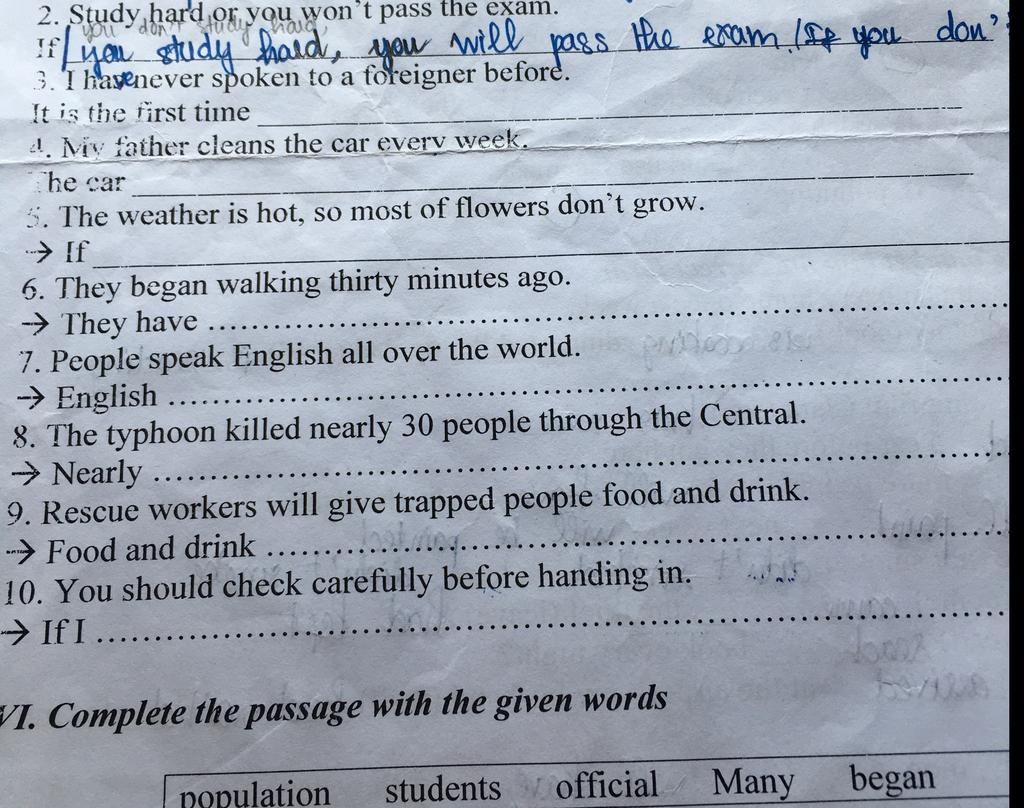 2. Study hard or you won't pass the exam.
you don't study hard,
If you study hard, you will pass the exam. / If you don'
3. I have never spoken to a foreigner before.
It is the first time
4. My father cleans the car every week.
The car
5. The weather is hot, so most of flowers don't grow.
→ If
6. They began walking thirty minutes ago.
→ They have
7. People speak English all over the world.
→ English
8. The typhoon killed nearly 30 people through the Central.
→ Nearly
9. Rescue workers will give trapped people food and drink.
→ Food and drink
10. You should check carefully before handing in.
→ If I
VI. Complete the passage with the given words
population students official Many began